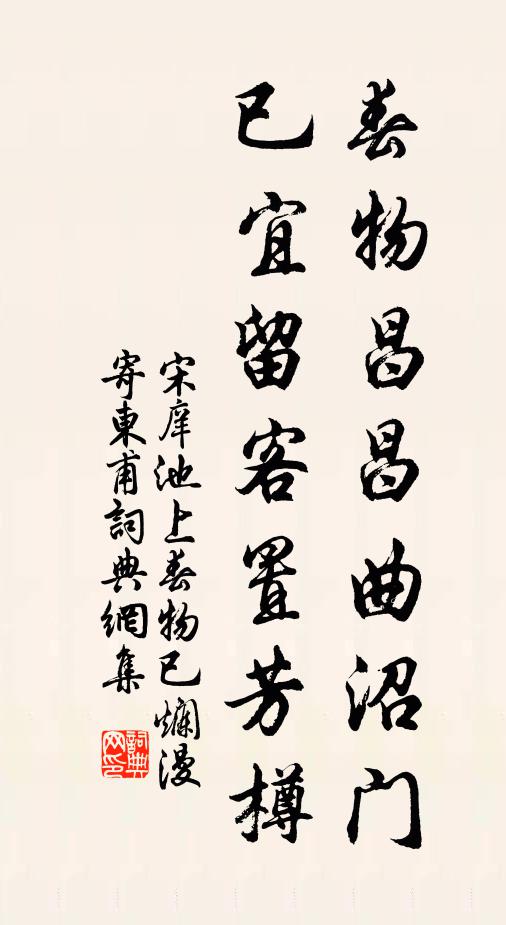 春物昌昌曲沼门
已宜留客置芳樽
宋庠池上春物已爛漫
寄東甫詞典網集
詞典网印